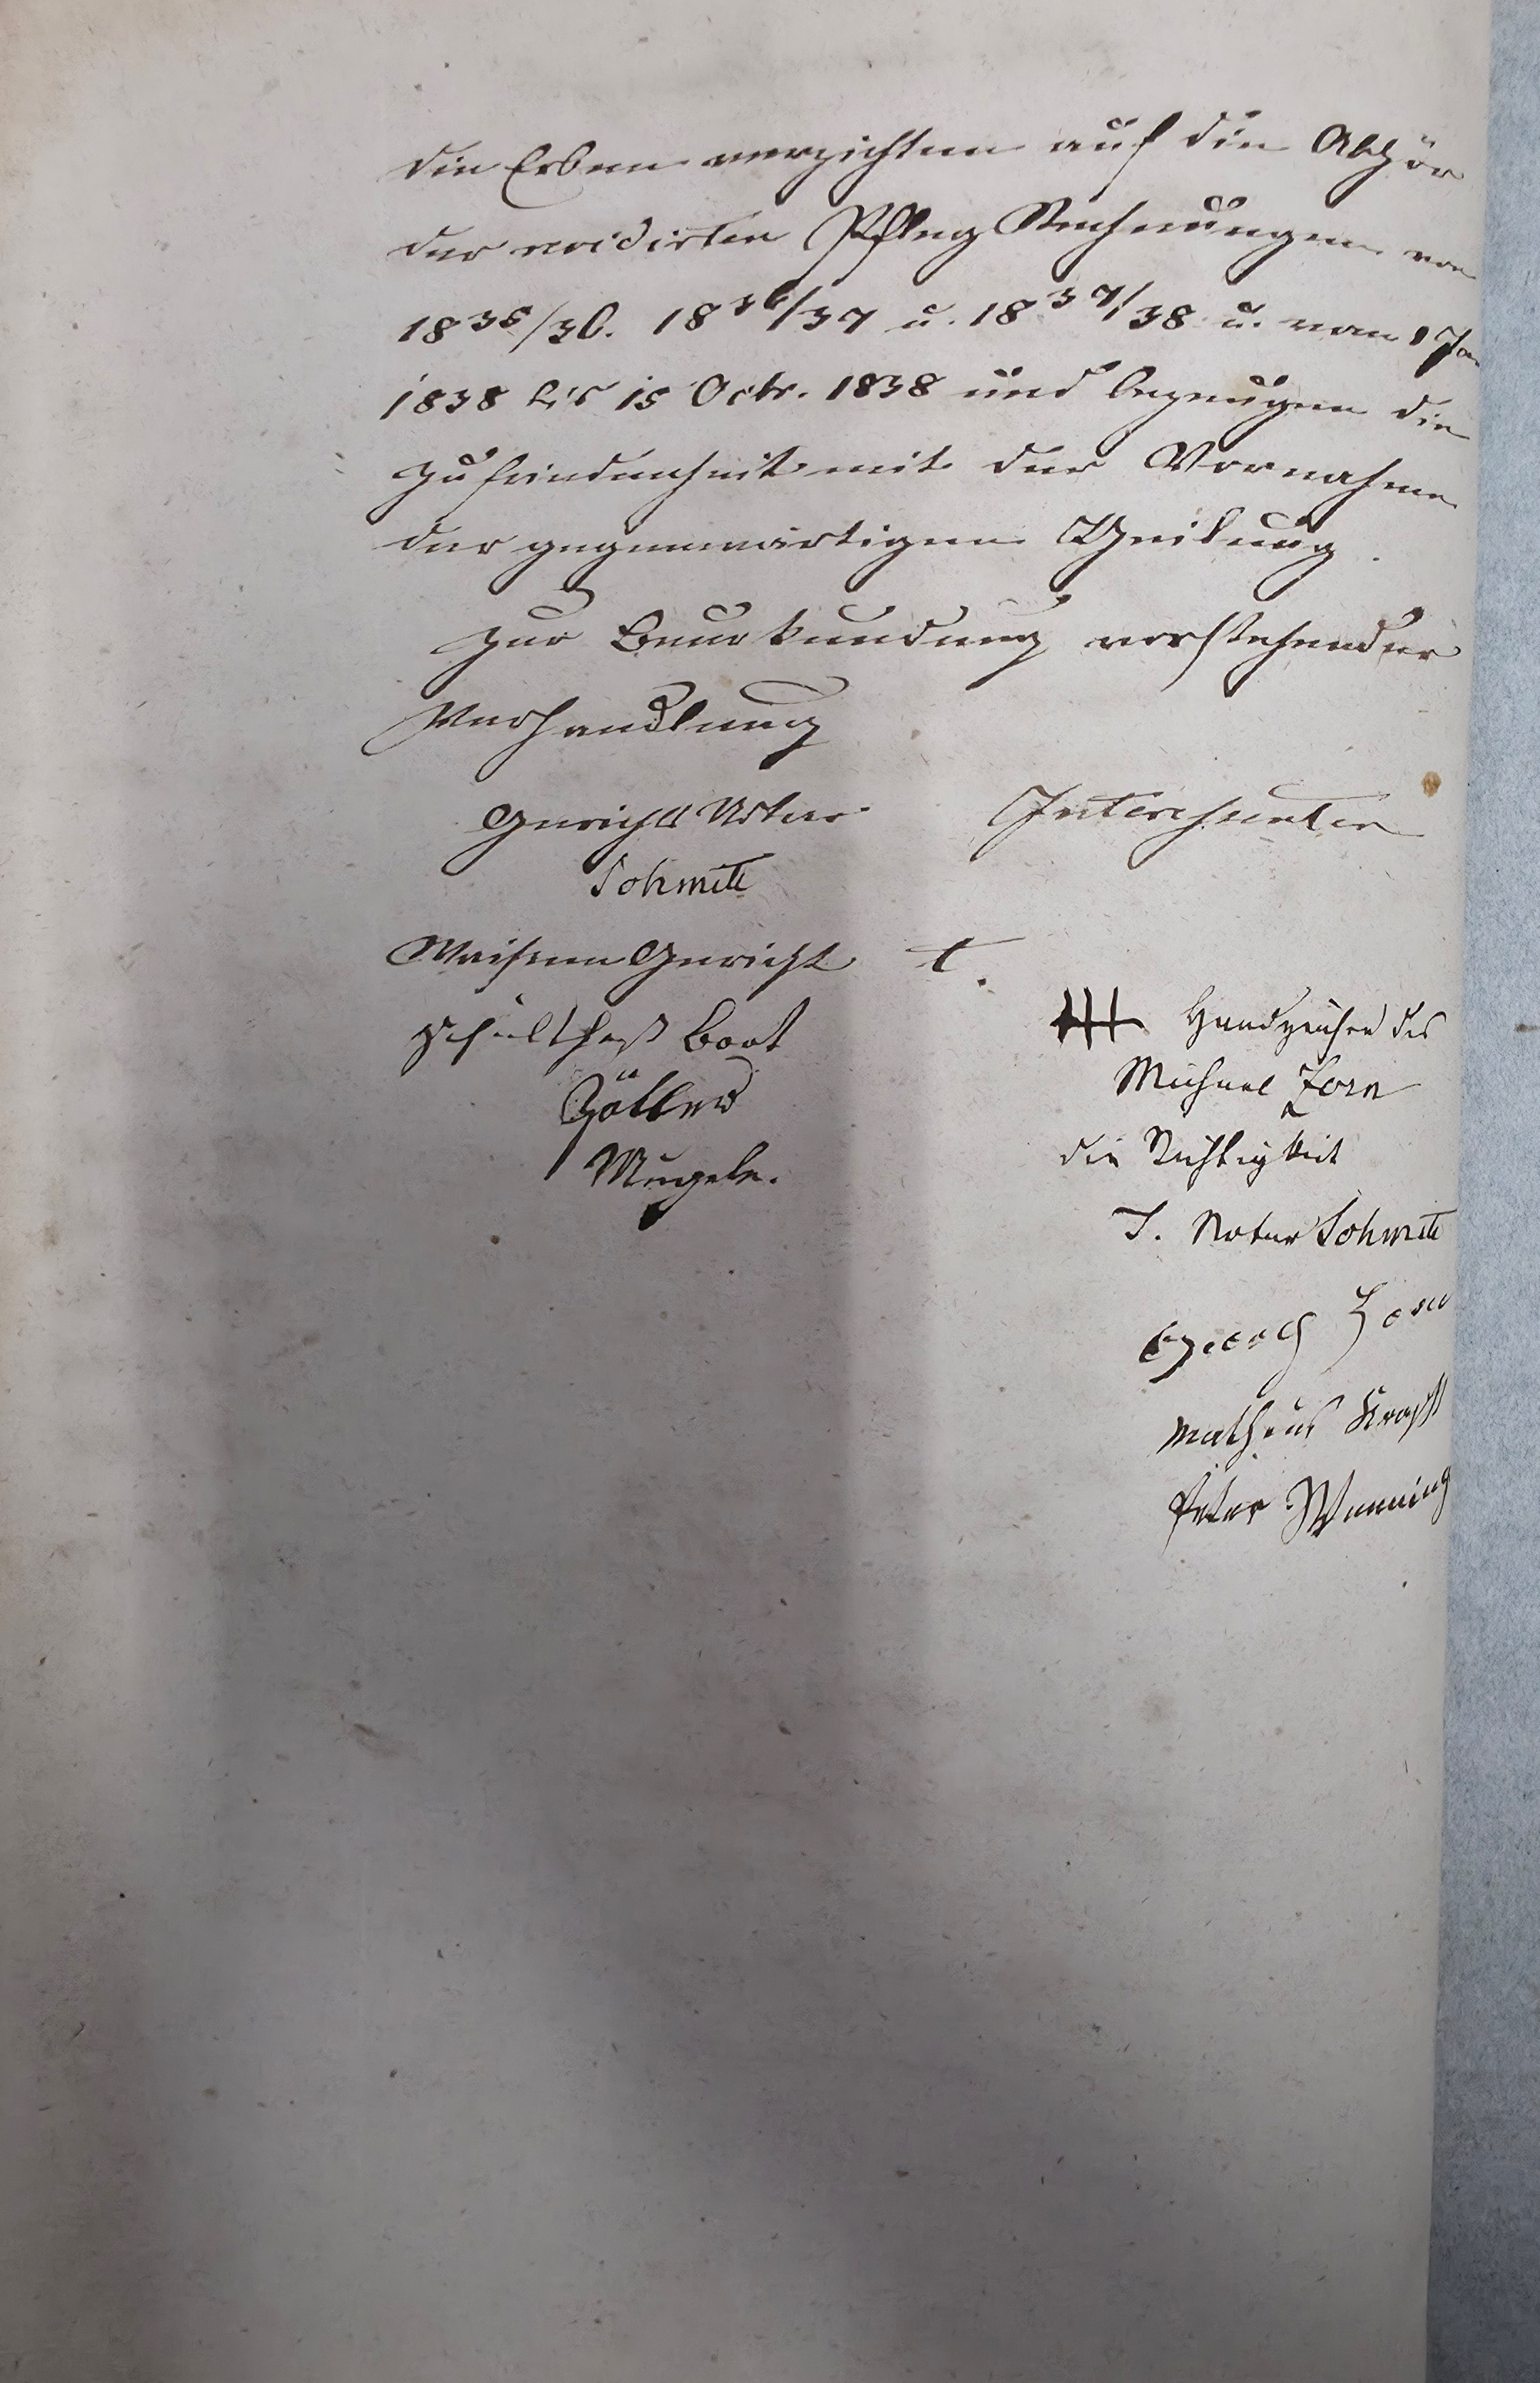 die Erben verzichten auf die Abhör
der revidirten Pfleg Rechnungen von
1835/36. 1836/37 u. 1837/38 u. vom 1 Ja
1838 bis 15 Octr. 1838 und bezeugen die
Zufriedenheit mit der Vornahme
der gegenwärtigen Theilung.
Zur Beurkundung vorstehender
Verhandlung
Gerichts Notar Interessenten
Schmitt
Waisen Gericht t.
Schultheß
Handzeichen des
Michael Zorn
Zoller
die Richtigkeit
Mugele.
T. Notar Schmitt
Georg Zorn
Matheus Krafft
Peter Wenning